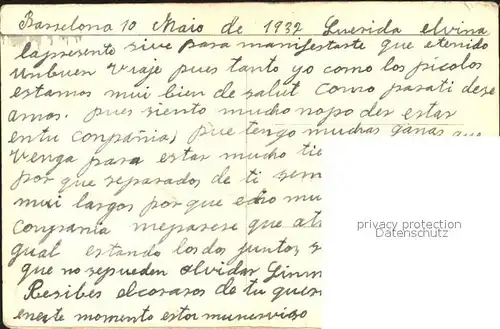 Barselona 10 Maio de 1932 Querida elvira
lapresente sive para manifestarte que etenido
unbuen viaje pues tanto yo como los picolos
estamos mui bien de salut como parati dese
amos. pues siento mucho nopo der estar
entu conpañia, pue tengo muchas ganas que
venga para estar mucho tie
por que separados de ti sem
mui largos por que echo mu
conpania meparese que at
gual estando losdos juntos, s
que no sepueden olvidar Sinm
Resibes elcorason de tu quer
eneste momento estoi munervioso
privacy protection
Datenschutz